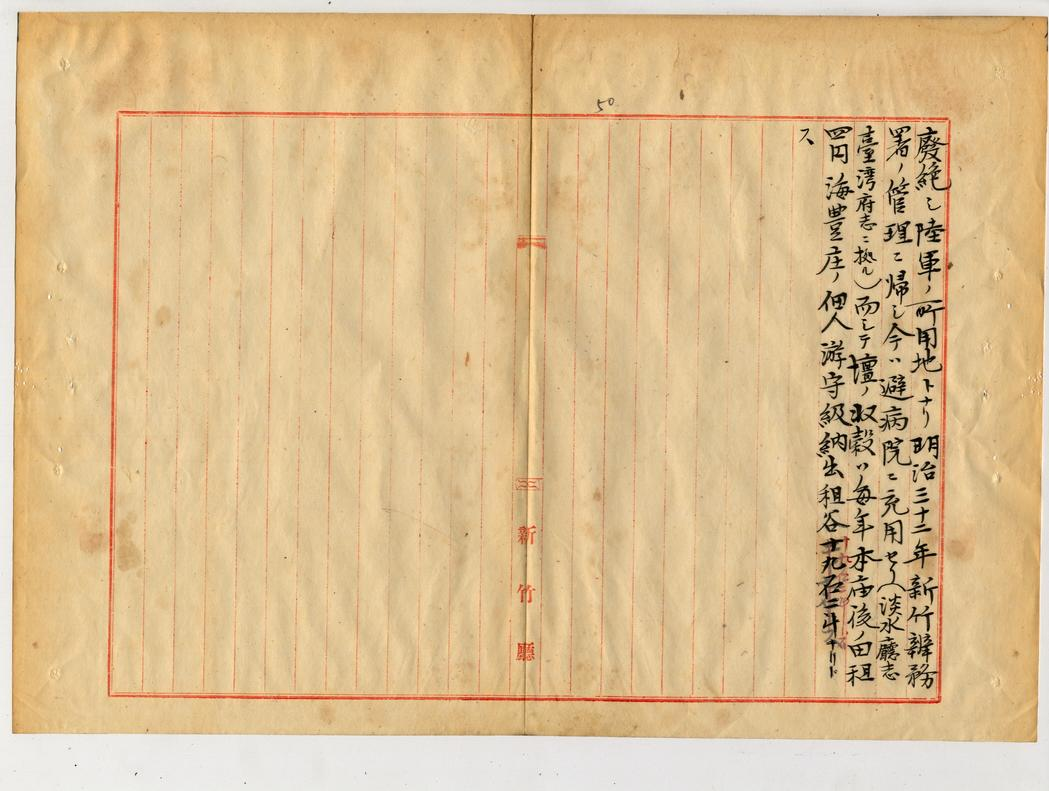 50
廢絶シ陸軍ノ所用地トナリ明治三十二年新竹辨務
署ノ管理ニ帰シ今ハ避病院ニ充用セリ(淡水廳志
臺湾府志ニ拠ル)而シテ壇ノ収穀ハ毎年本庙後ノ田租
四円海豊庄ノ佃人游守級納出租谷十九石二斗ナリト
ス
新竹廳